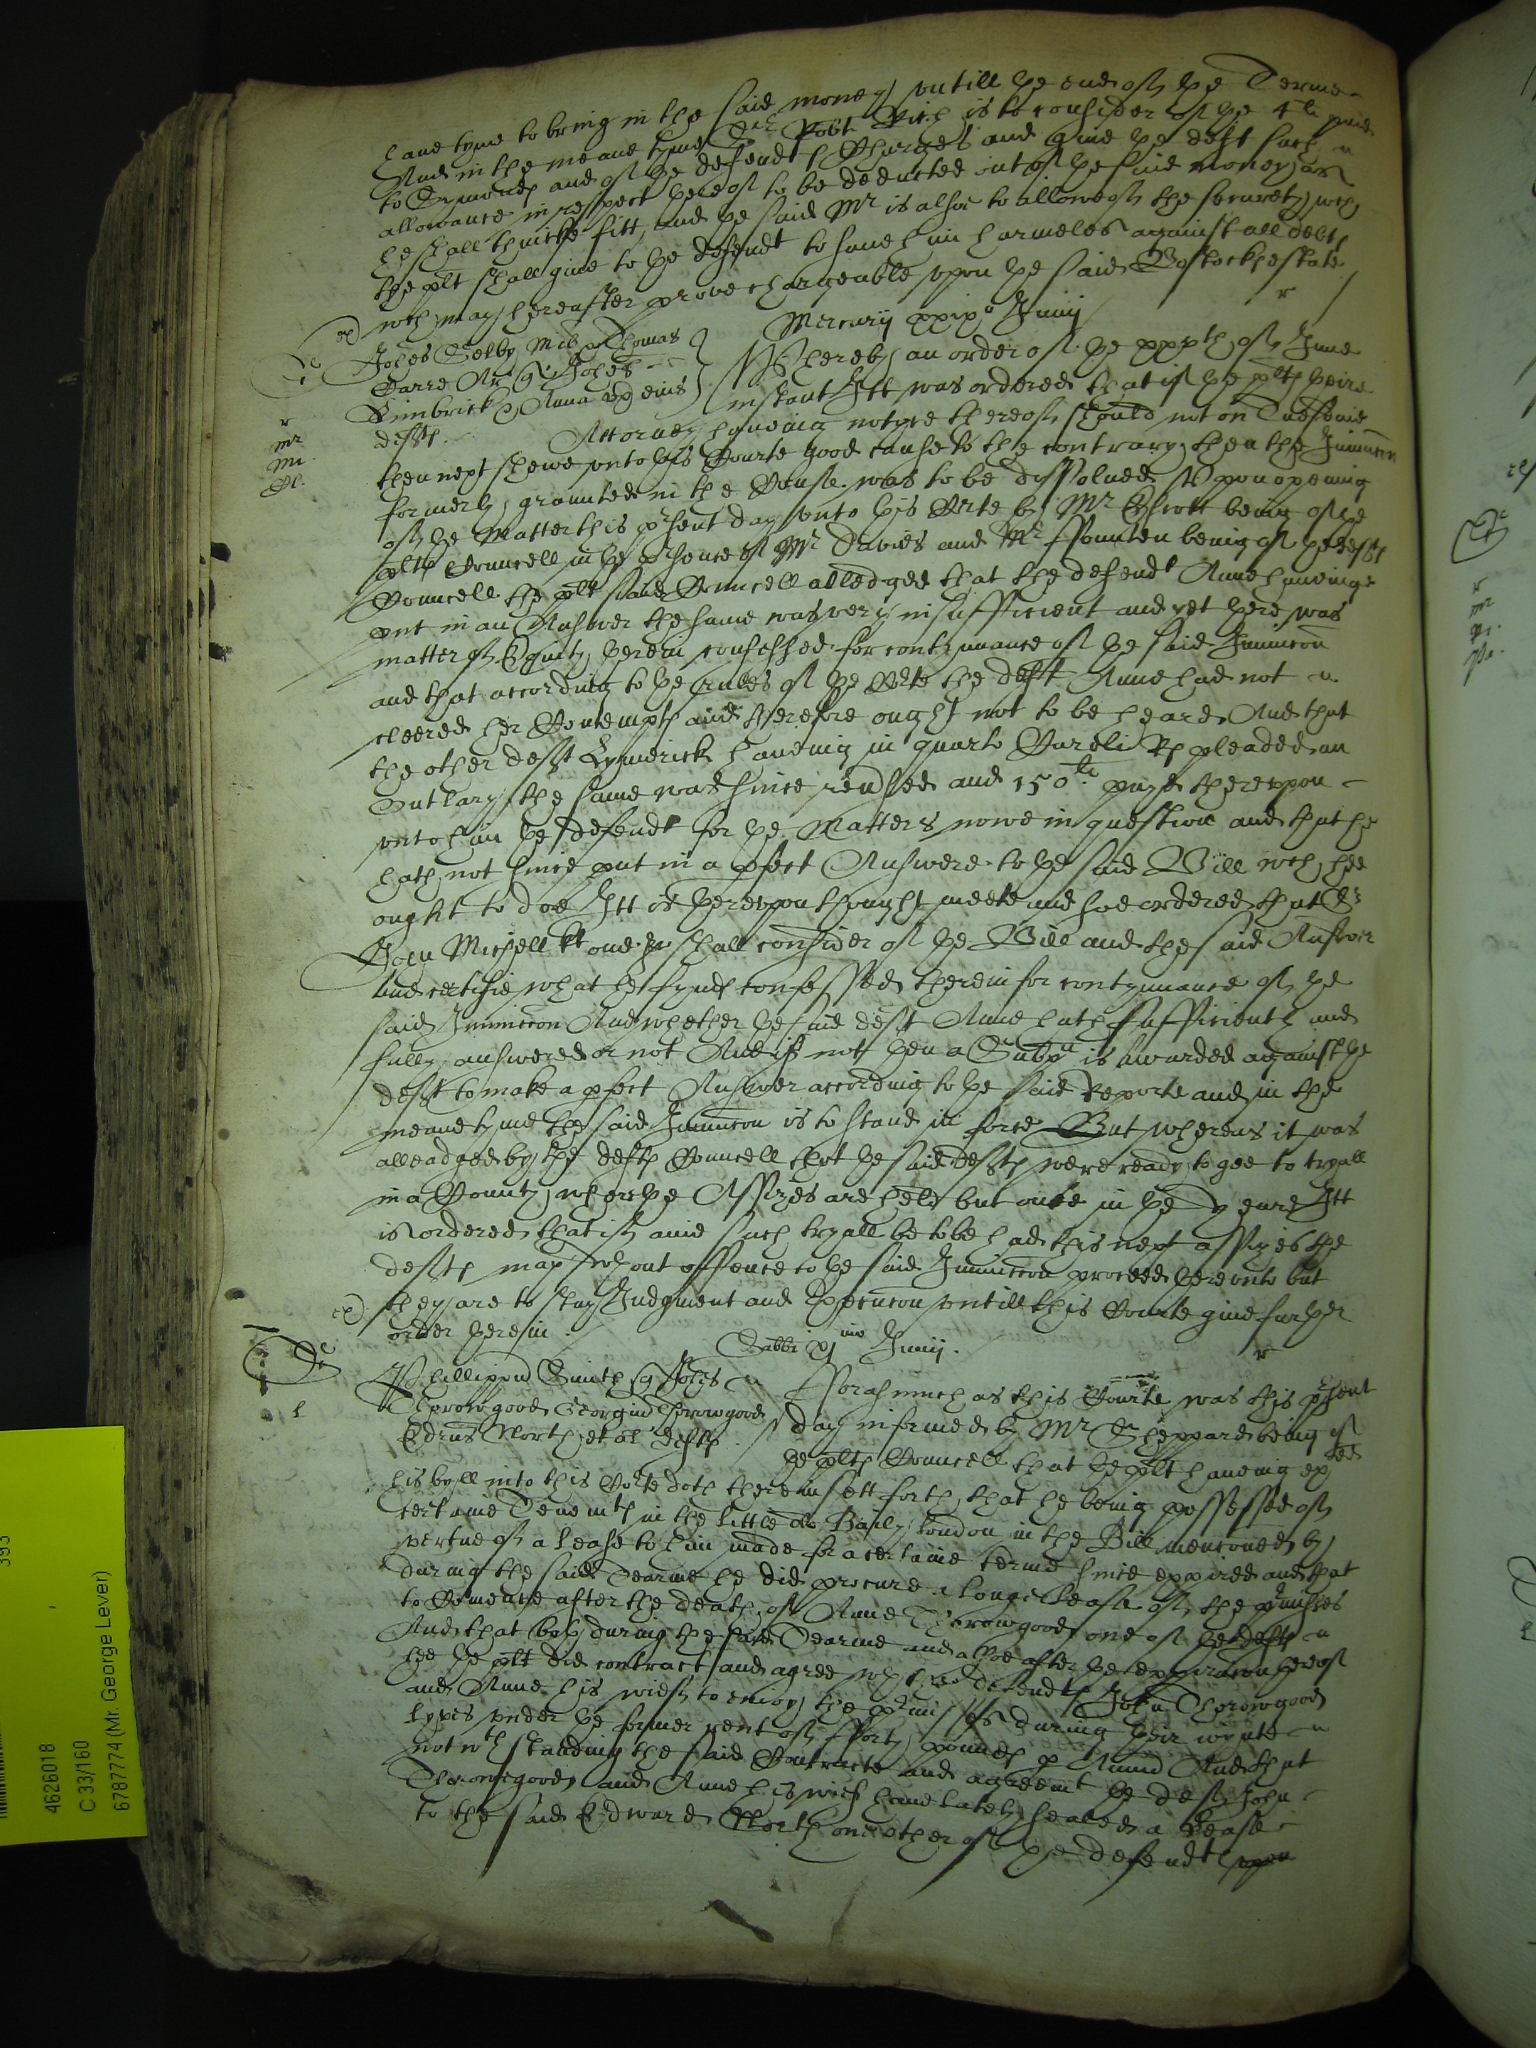 have tyme to bring in the said money untill the end of the Terme
And in the meane tyme Sir Robt Rich is to consider of the 4li paid
to Symonds and of the defendts Charges and give the deft such
allowance in respect thereof to be deducted out of the said money as
he shall thinke fitt, and the said Mr is alsoe to allowe of the securety wch
the plt shall give to the defendt to save him harmeles against all debts
wch may hereafter prove chargeable upon the said Bostocks estate
Mercurij xxixo Junij
Johes Selby Mil & Thomas
Barre Ar quer Johes
Limbrick & Anna ux eius
defts
Whereby an order of the xxxth of June
instant Itt was ordered that if the plts theire
Attorney haveing notyce thereof should not on Tuesdaie
then next shewe unto this Courte good cause to the contrary, then the Iniunccon
formerly graunted in the Cause was to be dissolved, Upon opening
of the Matter this prsent day unto this Corte by Mr Escott being of the
plts Councell in the prsence of Mr Davies and Mr ffounten being of the defts
Councell the plts said Councell alledged that the defendt Anne haveinge
put in an Answer the same was very insufficient and yet there was
matter of Equity therein confessed for contynuance of the said Iniunccon
and that according to the rules of the Corte the deft Anne had not
cleered her Contempts and therefore ought not to be heard And that
the other deft Lymerick haveing in quarto Caroli Rs pleaded an
Outlary, the same was since reversed and 150li. payd thereupon
unto him the defendt for the Matters nowe in question and that he
hath not since put in a pfect Answere to the said Bill wch hee
ought to doe Itt is thereupon thought meete and soe ordered that Sr
John Michell kt one &c shall consider of the Bill and the said Answer
and certifie what he fynds confessed therein for contynuance of the
said Iniunccon And whether the said deft Anne hath sufficiently and
fully answered or not And if not then a Subpa is awarded against the
deft to make a pfect Answer according to the said Reporte and in the
meane tyme the said Iniunccon is to stand in force But whereas it was
alleadged by the defts Councell that the said defts were ready to goe to tryall
in a County where the Assizes are held but once in the yeare Itt
is ordered that if anie such tryall be to be had this next assizes the
defts may wthout offence to the said Iniunccon proceed thereunto but
they are to stay Judgment and Execucon untill this Courte give further
order therein.
Sabbi xjmo Junij.
Phillippus Smith quer Johes
Thorowgood Georgius Thorowgood
Edrus North et al defts
fforasmuch as this Courte was this prsent
day informed by Mr Sheppard being of
the plts Councell that the plt haveing exhibited
his byll into this Corte doth therein sett forth, that he being possessed of
certaine Tenemts in the little old Baily London in the Bill mencioned by
vertue of a Lease to him made for a certaine terme since expired and that
during the said Tearme he did procure a longe Lease of the prmisses
to Comence after the death of Anne Thorowgood one of the defts
And that both during the said Tearme and alsoe after the expiracon thereof
hee the plt did contract and agree wth the defendts John Thorowgood
and Anne his wief to enioy the prmisses during their ioynte
lyves under the former rent of fforty pounds p Annu And that
notwthstanding the said Contracte and agreemt the deft John
Thorowgood and Anne his wief have lately sealed a Lease
to the said Edward North one other of the defendts upon
4626018
C 33/160
6787774 (Mr. George Lever)
393